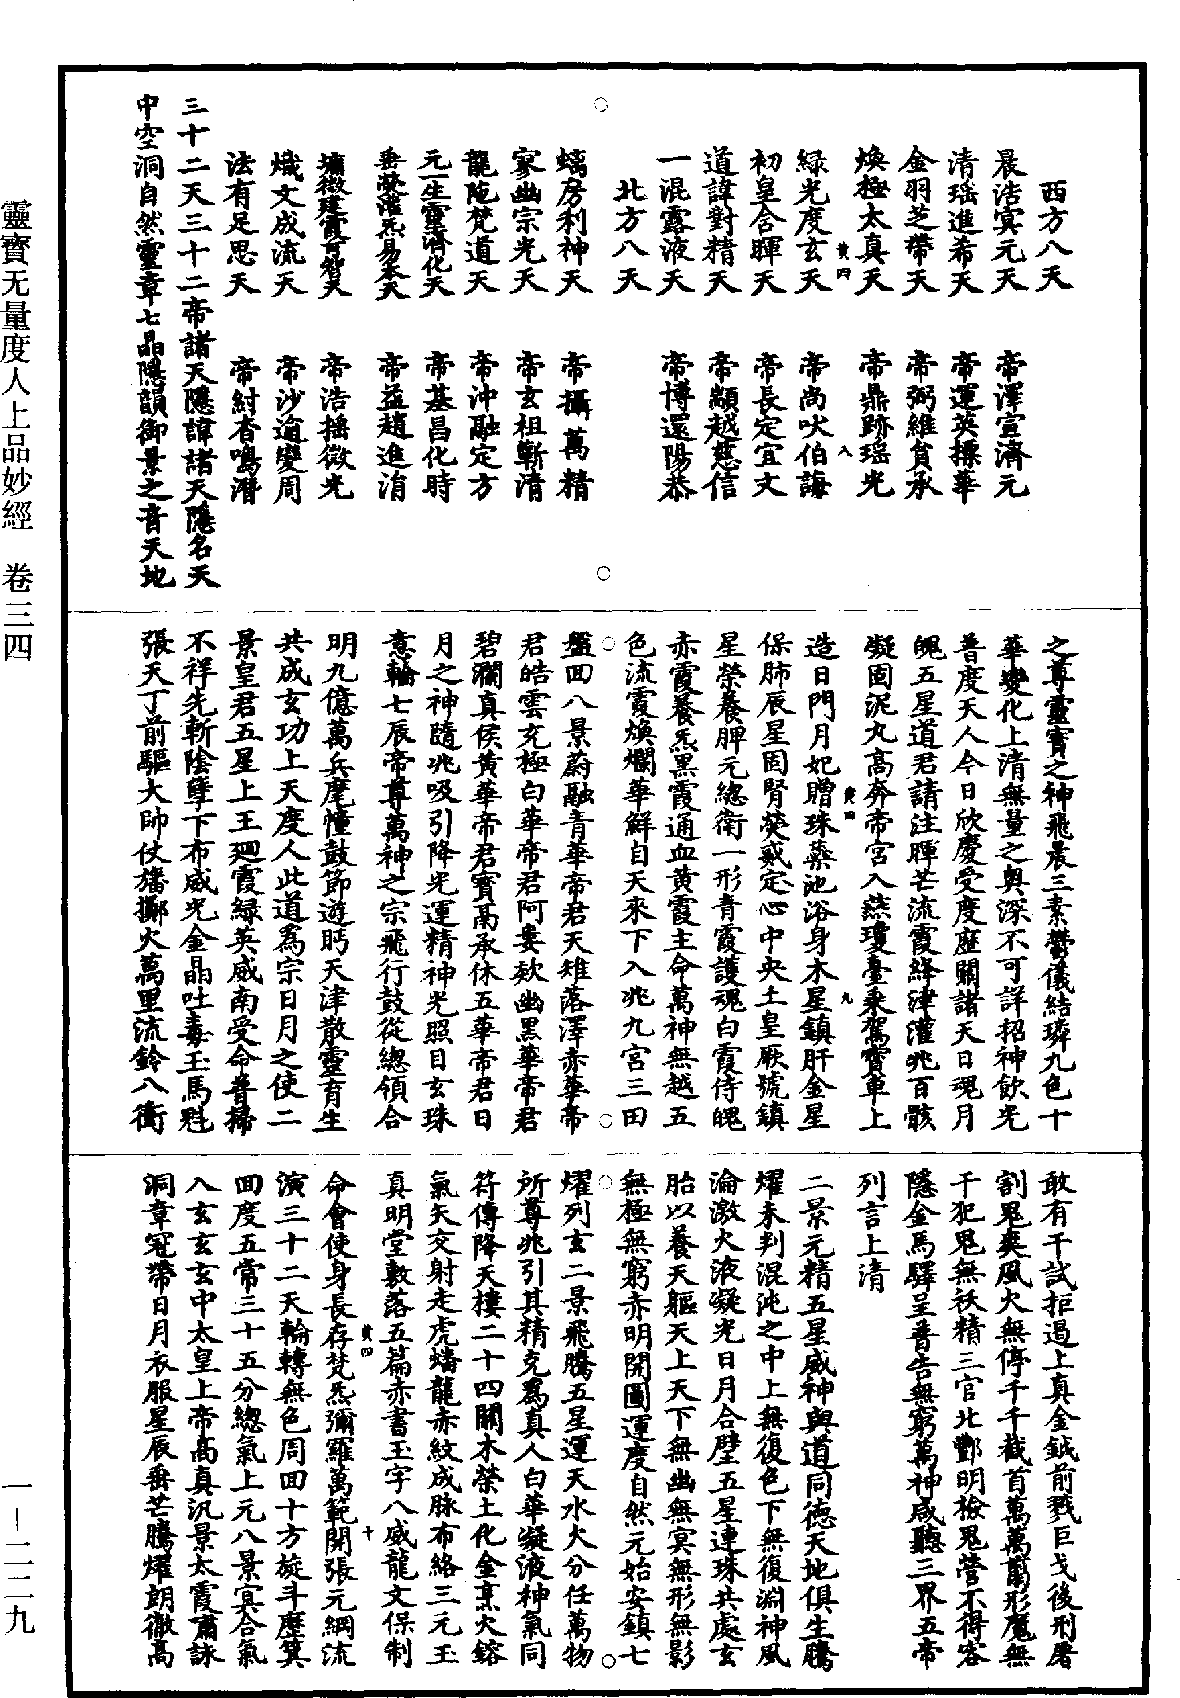 西方八天
晨浩㝠元天　帝澤宣濟元
清瑶進希天　帝運英摽華
金羽芝帶天　帝弼維負承
煥極太真天　帝鼎跡瑶光
黄四　八
緑光度玄天　帝尚吠伯誨
初皇合暉天　帝長定宜文
道諱對精天　帝顓越慈信
一混露液天　帝博還陽恭
北方八天
螭房利神天　帝攝萬精
寥幽宗光天　帝玄祖斬清
龍陁梵道天　帝沖融定方
元一生靈濟化天　帝基昌化時
垂榮灌炁易本天　帝益趙進消
墉微建霄育智天　帝浩摇微光
熾文成流天　帝沙逌變周
法有足思天　帝紂杳鳴潛
三十二天三十二帝諸天隱諱諸天隱名天
中空洞自然靈章七晶隱韻御景之音天地
之尊靈寶之神飛晨三素欝儀結璘九色十
華變化上清無量之奥深不可詳招神飲光
普度天人今日欣慶受度歷關諸天日魂月
魄五星道君請注暉芒流霞絳津灌兆百骸
凝固泥丸高奔帝宮入燕瓊臺乘駕寶車上
黄四　九
造日門月妃贈珠蘂池浴身木星鎮肝金星
保肺辰星固腎熒惑定心中央土皇厥號鎮
星榮養脾元總衛一形青霞護魂白霞侍魄
赤霞養炁黑霞通血黄霞主命萬神無越五
色流霞煥爛華鮮自天來下入兆九宮三田
盤回八景蔚融青華帝君天雉落澤赤華帝
君皓雲充極白華帝君阿婁欻幽黑華帝君
碧瀾真侯黄華帝君寳高承休五華帝君日
月之神隨兆吸引降光運精神光照目玄珠
意輪七辰帝尊萬神之宗飛行鼓從總領合
明九億萬兵麾幢鼓節遊眄天津散靈育生
共成玄功上天度人此道爲宗日月之使二
景皇君五星上王廻霞緑英威南受命普掃
不祥先斬陰孽下布威光金晶吐毒玉馬魁
張天丁前驅大帥仗旛擲火萬里流鈴八衝
敢有干試拒遏上真金鉞前戮巨戈後刑屠
割鬼爽風火無停千千截首萬萬剪形魔無
干犯鬼無袄精三官北酆明檢鬼營不得容
隱金馬驛呈普告無窮萬神咸聽三界五帝
列言上清
二景元精五星威神與道同德天地俱生騰
燿未判混沌之中上無復色下無復淵神風
淪激火液凝光日月合璧五星連珠共處玄
胎以養天軀天上天下無幽無冥無形無影
無極無窮赤明開圖運度自然元始安鎮七
燿列玄二景飛騰五星運天水火分任萬物
所尊兆引其精克爲真人白華凝液神氣同
符傳降天樓二十四關木榮土化金烹火鎔
氣矢交射走虎蟠龍赤紋成脉布絡三元玉
真明堂敷落五篇赤書玉字八威龍文保制
黄四　十
命會使身長存梵炁彌羅萬範開張元綱流
演三十二天輪轉無色周回十方旋斗歷箕
回度五常三十五分總氣上元八景㝠合氣
八玄玄玄中太皇上帝高真汎景太霞肅詠
洞章冠帶日月衣服星辰垂芒騰燿朗徹高
靈寶无量度人上品妙經　卷三四
一–二二九